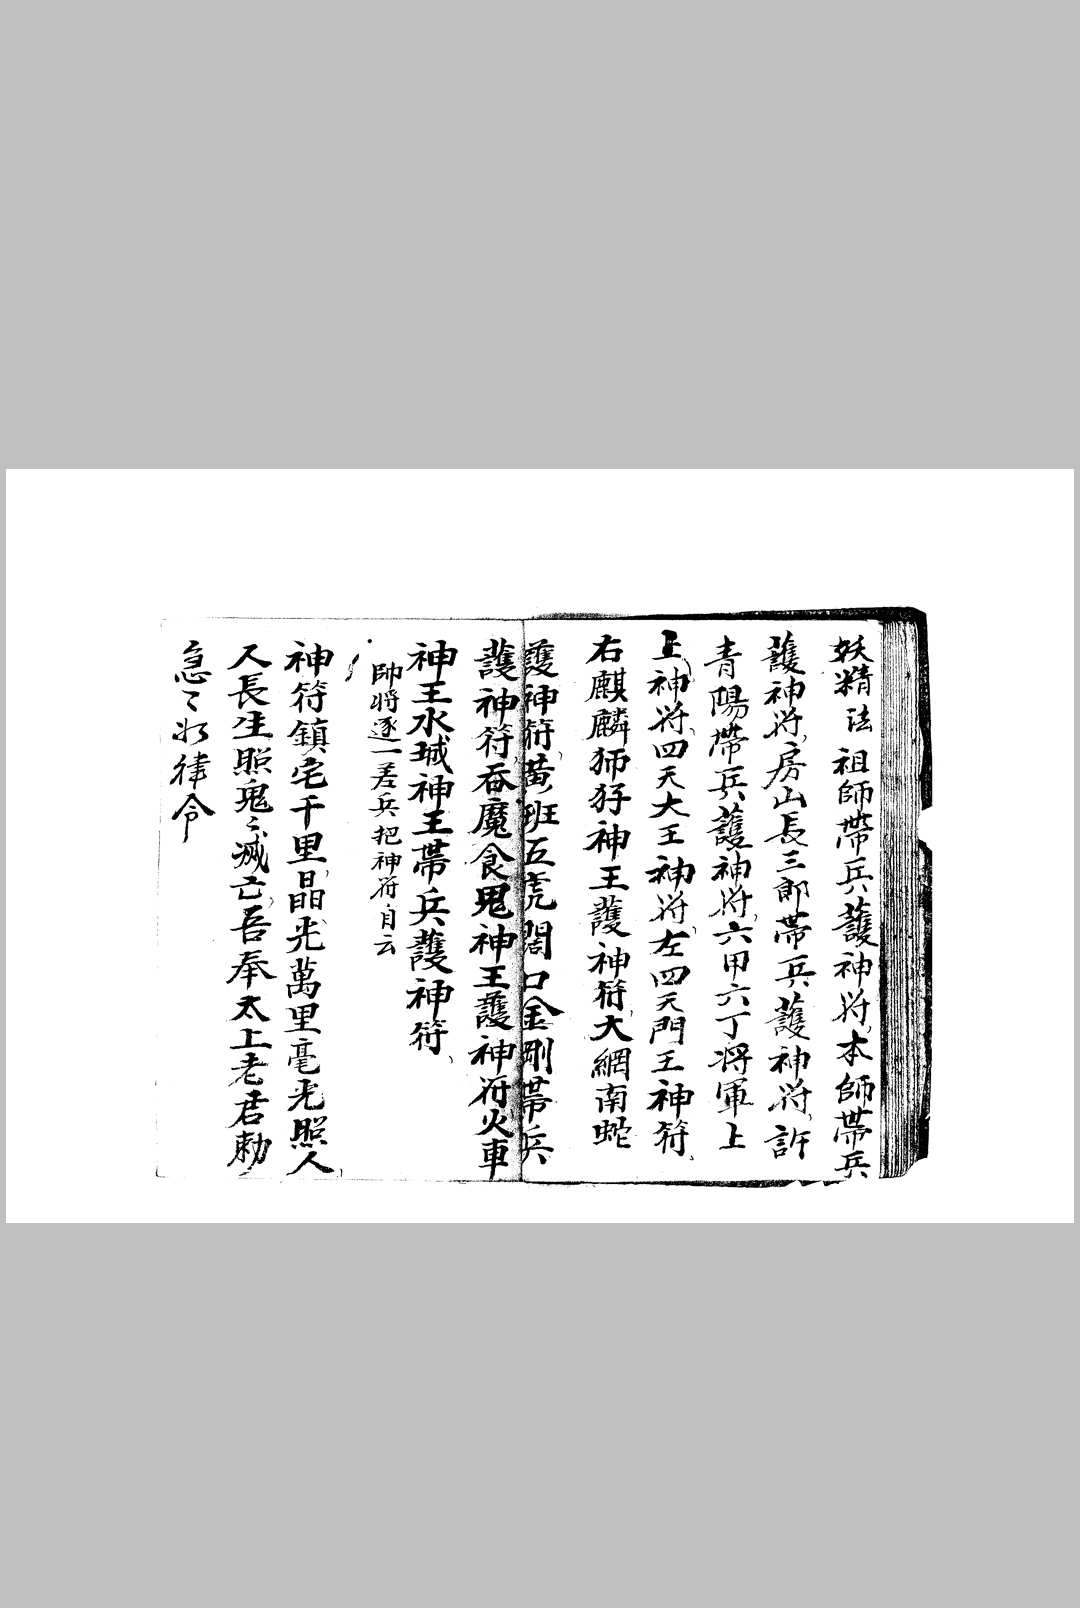 妖精法祖師帶兵護神符本師帶兵
護神符房山長三郎帶兵護神符許
青陽帶兵護神符六甲六丁将軍上
上神符四天大王神符左四天門王神符
右麒麟狮犴神王護神符大網南蛇
護神符黄班五虎閣口金剛帶兵
護神符吞魔食鬼神王護神符火車
神王水城神王帶兵護神符
帥将逐一差兵把神符自云
神符鎮宅千里晶光萬里毫光照人
人長生照鬼〻滅亡吾奉太上老君勅
急〻如律令